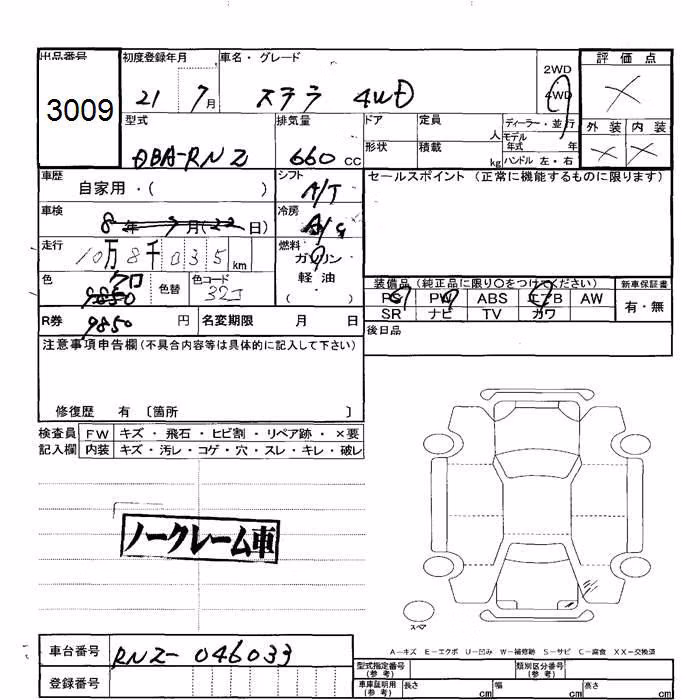 出品番号 初度登録年月 車名・グレード 2WD 4WD 評価点
3009 21 7月 ステラ 4WD
型式 排気量 ドア 定員 人 ディーラー・並行 外装 内装
モデル年式 年
DBA-RN2 660 CC 形状 積載 kg ハンドル 左・右
車歴 自家用・( ) シフト A/T セールスポイント (正常に機能するものに限ります)
車検 8年7月(22日) 冷房 A/C
走行 10万8千035km 燃料 ガソリン
軽・油
( )
色 クロ 色替 色コード 32J
装備品 (純正品に限り○をつけてください) 新車保証書
PS PW ABS エアB AW 有・無
SR ナビ TV カワ
R券 9850 円 名変期限 月 日 後日品
注意事項申告欄(不具合内容等は具体的に記入して下さい)
修復歴 有 〔箇所 〕
検査員 FW キズ・飛石・ヒビ割・リペア跡・×要
記入欄 内装 キズ・汚レ・コゲ・穴・スレ・キレ・破レ
ノークレーム車
スペア
A-キズ E-エクボ U-凹み W-補修跡 S-サビ C-腐食 XX-交換済
車台番号 RN2-046033
登録番号
型式指定番号(参考) 類別区分番号(参考)
車庫証明用(参考) 長さ cm 幅 cm 高さ cm